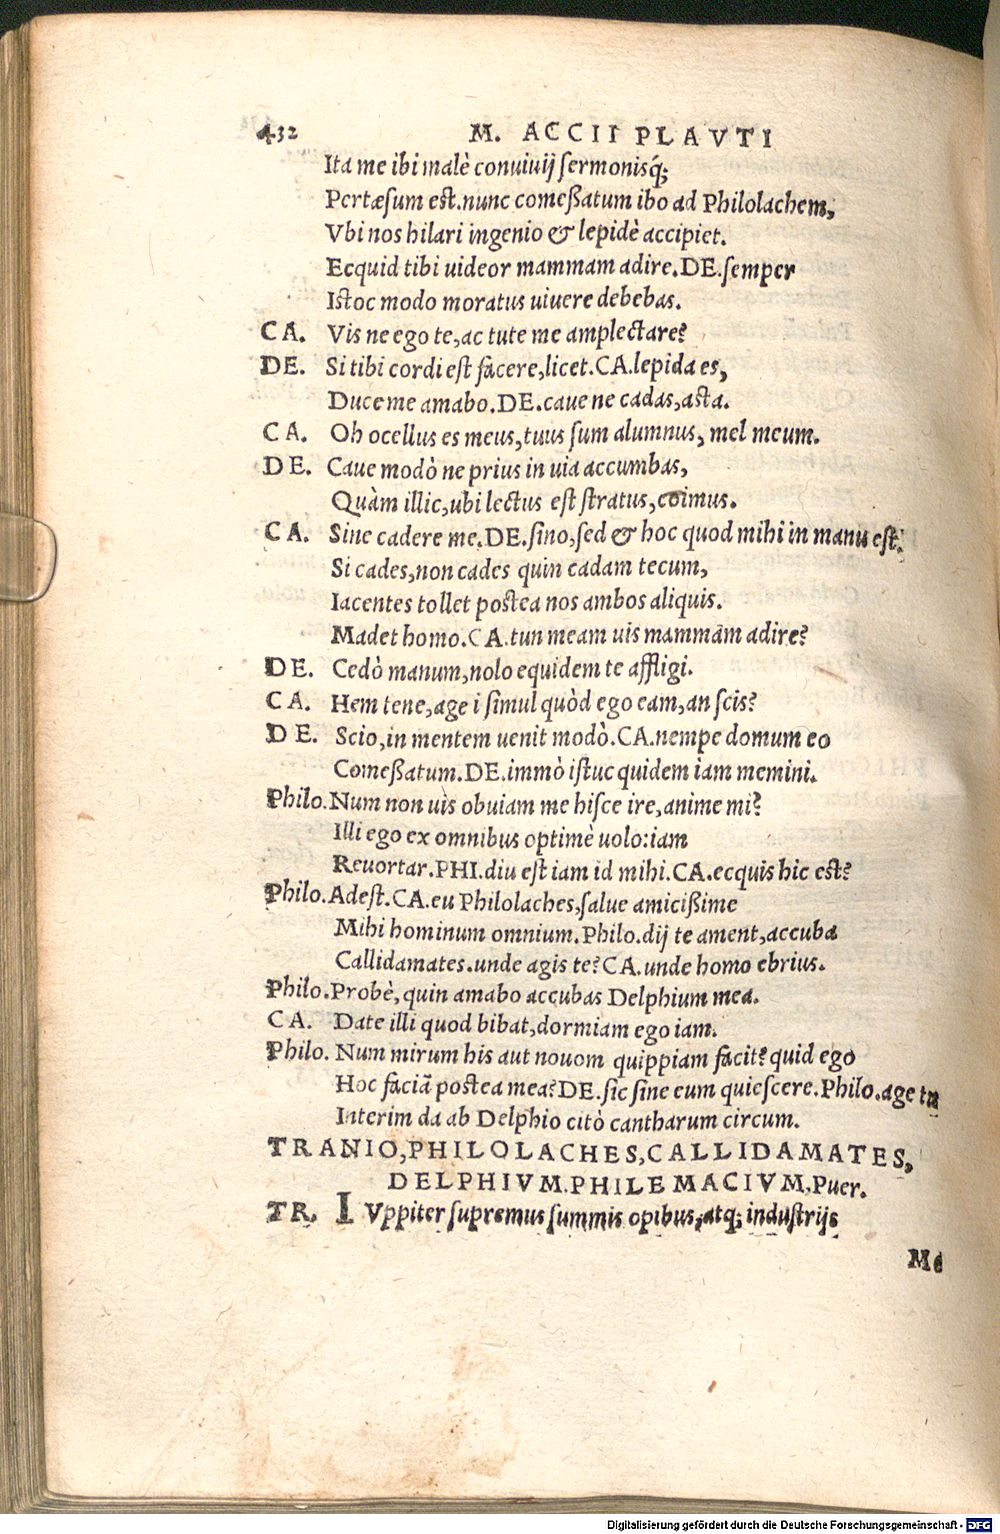 432 M. ACCII PLAVTI
Ita me ibi malè conuiuij sermonisq́;
Pertæsum est.nunc comeßatum ibo ad Philolachem,
Vbi nos hilari ingenio & lepidè accipiet.
Ecquid tibi uideor mammam adire.DE.semper
Istoc modo moratus uiuere debebas.
CA. Vis ne ego te,ac tute me amplectare?
DE. Si tibi cordi est facere,licet.CA.lepida es,
Duce me amabo.DE.caue ne cadas,asta.
CA. Oh ocellus es meus,tuus sum alumnus, mel meum.
DE. Caue modò ne prius in uia accumbas,
Quàm illic,ubi lectus est stratus,coimus.
CA. Sine cadere me.DE.sino,sed & hoc quod mihi in manu est.
Si cades,non cades quin cadam tecum,
Iacentes tollet postea nos ambos aliquis.
Madet homo.CA.tun meam uis mammam adire?
DE. Cedò manum,nolo equidem te affligi.
CA. Hem tene,age i simul quòd ego eam,an scis?
DE. Scio,in mentem uenit modò.CA.nempe domum eo
Comeßatum.DE.immò istuc quidem iam memini.
Philo. Num non uis obuiam me hisce ire,anime mi?
Illi ego ex omnibus optimè uolo:iam
Reuortar.PHI.diu est iam id mihi.CA.ecquis hic est?
Philo. Adest.CA.eu Philolaches,salue amicißime
Mihi hominum omnium.Philo.dij te ament,accuba
Callidamates.unde agis te?CA.unde homo ebrius.
Philo. Probè,quin amabo accubas Delphium mea.
CA. Date illi quod bibat,dormiam ego iam.
Philo. Num mirum his aut nouom quippiam facit?quid ego
Hoc faciã postea mea?DE.sic sine eum quiescere.Philo.age tu
Interim da ab Delphio citò cantharum circum.
TRANIO,PHILOLACHES,CALLIDAMATES,
DELPHIVM.PHILEMACIVM,Puer.
TR. IVppiter supremus summis opibus,atq; industrijs
Me
Digitalisierung gefördert durch die Deutsche Forschungsgemeinschaft - DFG